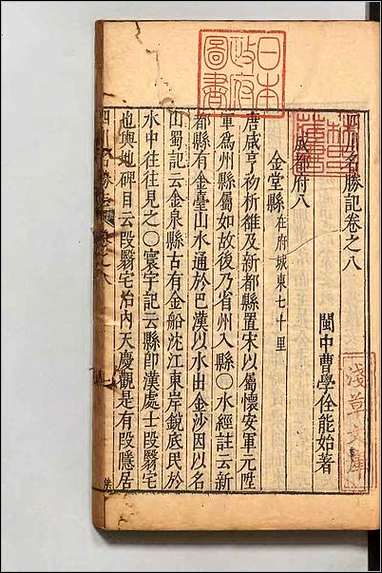 四川名勝記卷之八
閩中曹學佺能始著
成都府八
金堂縣在府城東七十里
唐咸亨初析雒及新都縣置宋以屬懷安軍元陞
軍爲州縣屬如故後乃省州入縣〇水經註云新
都縣有金臺山水通於巴漢以水出金沙因以名
山蜀記云金泉縣古有金船沈江東岸銳底民於
水中往往見之〇寰宇記云縣卽漢處士段翳宅
也輿地碑目云段翳宅怡內天慶觀是有段隱居
四川名勝
卷之八
日本
政府
圖書
淺草文庫